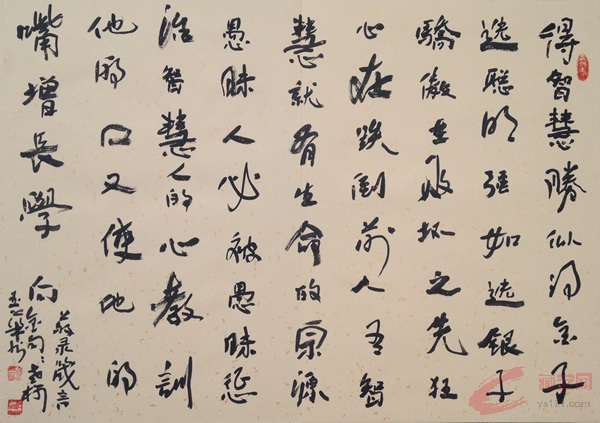 得智慧勝似得金子
选聪明强如选银子
驕傲在败坏之先狂
心在跌倒前人有智
慧就有生命的泉源
愚昧人必被愚昧惩
治智慧人的心教訓
他的口又使他的
嘴增長學
录箴言